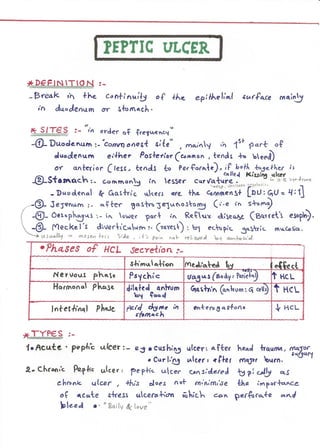 PEPTIC ULCER
* DEFINITION :-
- Break in the continuity of the epithelial surface mainly
in duodenum or stomach.
* SITES :- "in order of frequency"
① Duodenum :- "commonest site", mainly in 1st part of
duodenum either Posterior (common, tends to bleed)
or anterior (less, tends to Perforate), if both together is
called Kissing ulcer
② Stomach :- commonly in lesser curvature.
- Duodenal & Gastric ulcers are the commonest [DU:GU = 4:1]
③ Jejenum :- after gastrojejunostomy (i.e in stoma)
④ Oesophagus :- in lower part in Reflux disease (Barret's esoph).
⑤ Meckel's diverticulum :- (rarest) : by ectopic gastric mucosa.
usually mesenteric side, it's pain not relieved by antacid
• Phases of HCL secretion :-
stimulation Mediated by effect
Nervous phase Psychic vagus (Body: Parietal cells) ↑ HCL
Hormonal Phase dilated antrum by food Gastrin (antrum: G cells) ↑ HCL
Intestinal Phase Acid chyme in stomach enterogastone ↓ HCL
* TYPES :-
1- Acute peptic ulcer :- eg • cushing ulcer: after head trauma, major surgery
• Curling ulcer: after major burn.
2- Chronic Peptic ulcer: peptic ulcer considered typically as
chronic ulcer, this does not minimise the importance
of acute stress ulceration which can perforate and
bleed • "Baily & love"